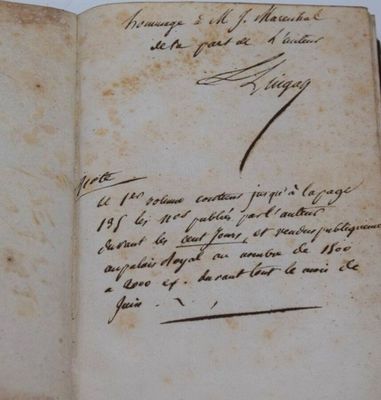 hommage à M J. Marechal
de la part de L'auteur
Note
Ce 1er volume contient jusqu'à la page
195 les nos publiés par l'auteur
durant les cent jours, et vendus publiquement
au palais Royal au nombre de 1500
a 2000 ex. durant tout le mois de
Juin.